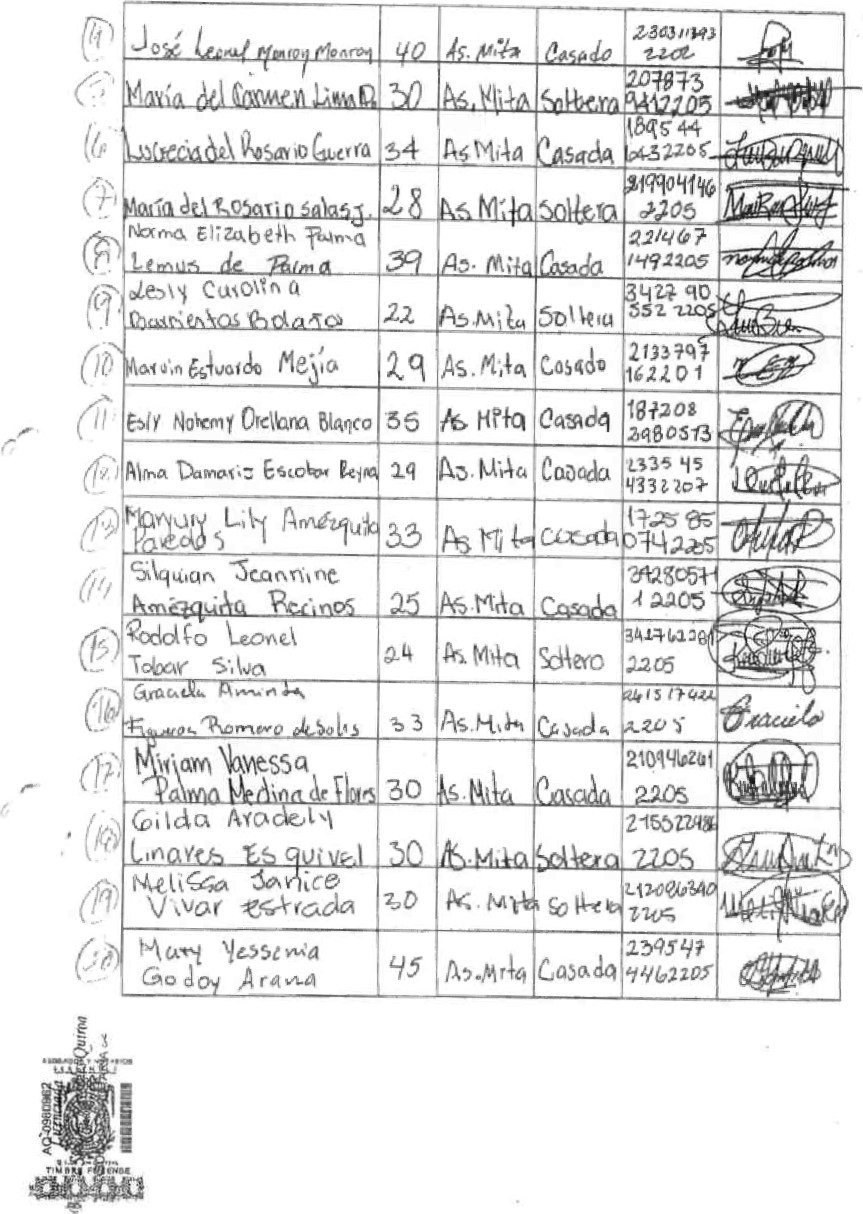 4 José Leonel Monroy Monroy 40 As. Mita Casado 230311393
2202
5 María del Carmen Lima D. 30 As. Mita Soltera 207873
9412205
6 Lucrecia del Rosario Guerra 34 As Mita Casada 189544
6432205
7 María del Rosario salas J. 28 As Mita Soltera 219904146
2205
8 Norma Elizabeth Palma
Lemus de Palma 39 As. Mita Casada 221467
1492205
9 Lesly Carolina
Barrientos Bolaños 22 As. Mita Soltera 3427 90
552 2205
10 Marvin Estuardo Mejía 29 As. Mita Casado 2133797
162201
11 Esly Nohemy Orellana Blanco 35 As Mita Casada 187208
3980513
12 Alma Damaris Escobar Reyna 29 As. Mita Casada 233545
4332207
13 Maryury Lily Amézquita
Paredes 33 As. Mita casada 1725 85
0742205
14 Silquian Jeannine
Amézquita Recinos 25 As. Mita Casada 34280571
1 2205
15 Rodolfo Leonel
Tobar Silva 24 As. Mita Soltero 341762281
2205
16 Graciela Aminda
Figueroa Romero de Solis 33 As. Mita Casada 241517422
2205 Graciela
17 Miriam Vanessa
Palma Medina de Flores 30 As. Mita Casada 210946261
2205
18 Gilda Aradely
Linares Esquivel 30 As. Mita Soltera 215522486
2205
19 Melissa Janice
Vivar estrada 30 As. Mita soltera 212096340
2205
20 Mary Yessenia
Godoy Arana 45 As. Mita Casada 239547
4462205
AQ-0980962
TIMBRE FORENSE